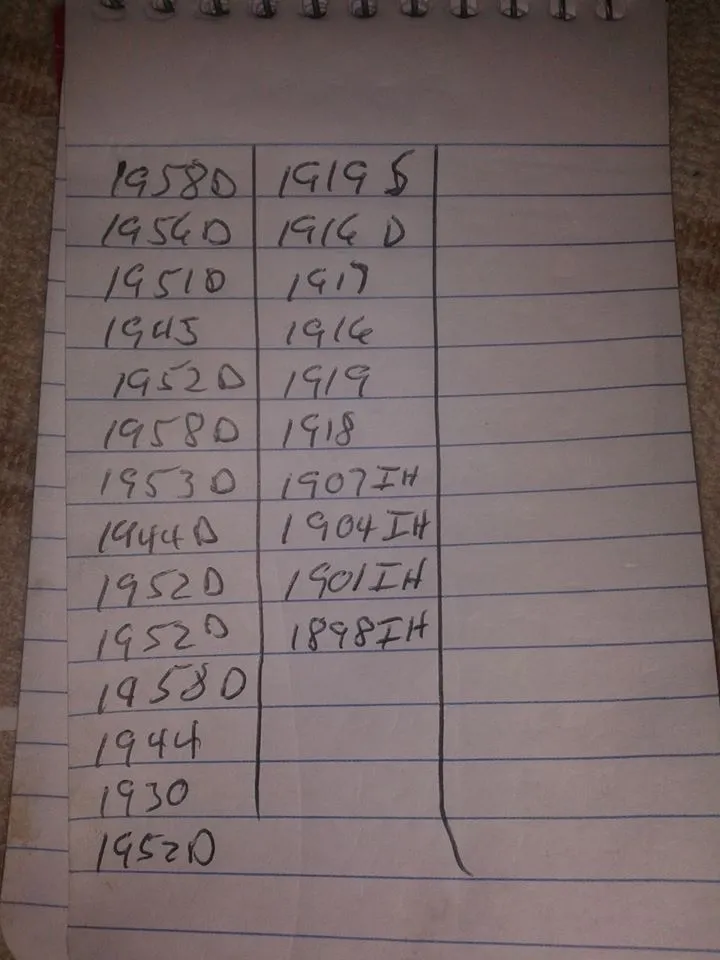 1958D
1956D
1951D
1945
1952D
1958D
1953D
1944D
1952D
1952D
1958D
1944
1930
1952D
1919 S
1916 D
1917
1916
1919
1918
1907 IH
1904 IH
1901 IH
1898 IH